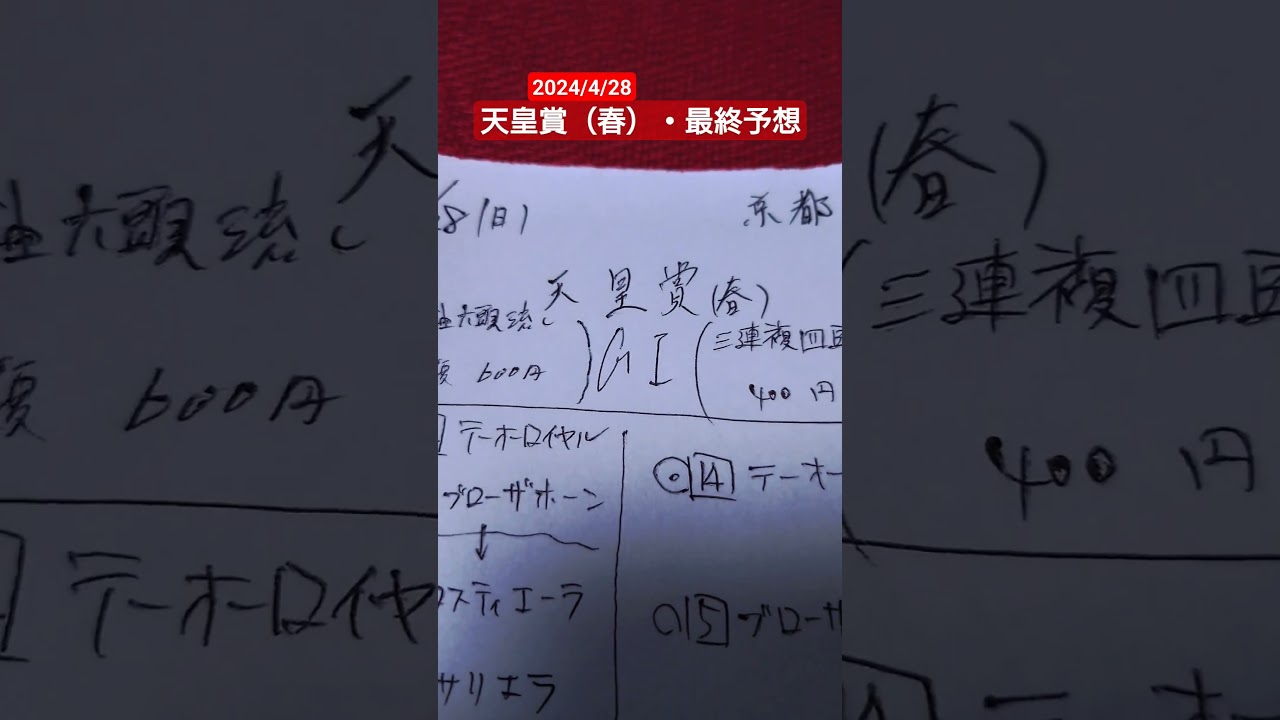 2024/4/28
天皇賞（春）・最終予想
8(日) 京都
天皇賞(春)
軸六頭流し GI 三連複四頭
600円 400円
テーオーロイヤル ◎14 テーオー
ブローザホーン
↓
スティエーラ ○5 ブローザ
サリエラ